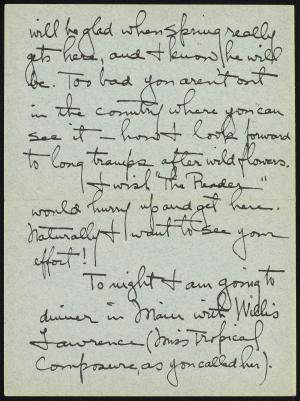 will be glad when Spring really
gets here, and I know he will
be. Too bad you aren't out
in the country where you can
see it – how I look forward
to long tramps after wildflowers.
I wish "The Reader"
would hurry up and get here.
Naturally I want to see your
effort!
To night I am going to
dinner in Main with Willis
Lawrence (Miss Tropical
Composure, as you called her).